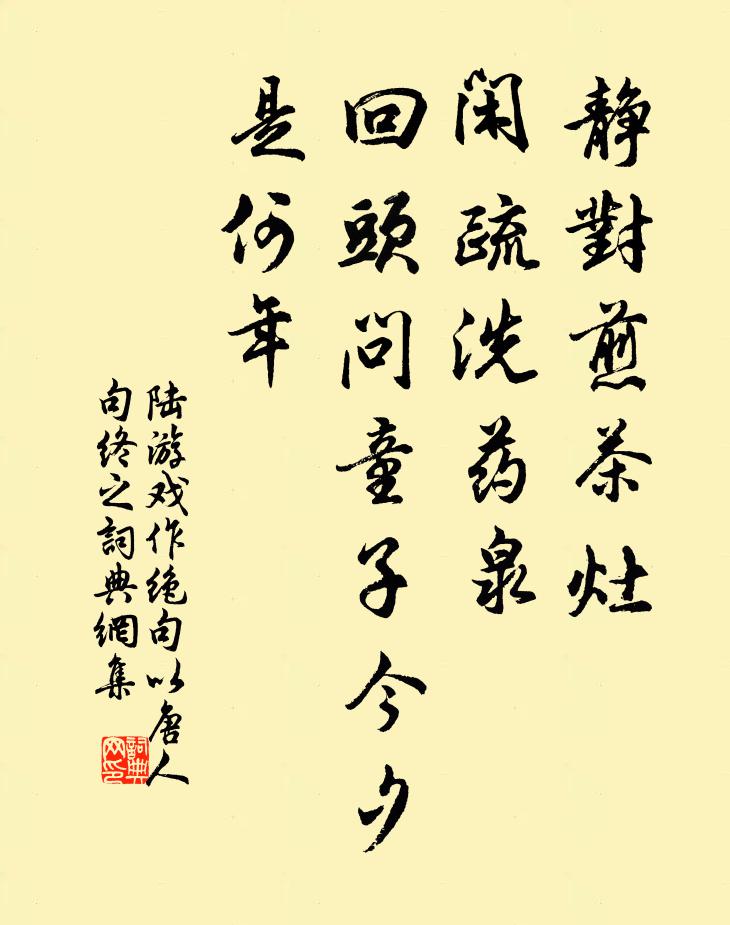 静對煎茶灶
闲疏洗药泉
回頭问童子今夕
是何年
陆游戏作绝句以唐人
句终之詞典網集
詞典
网印